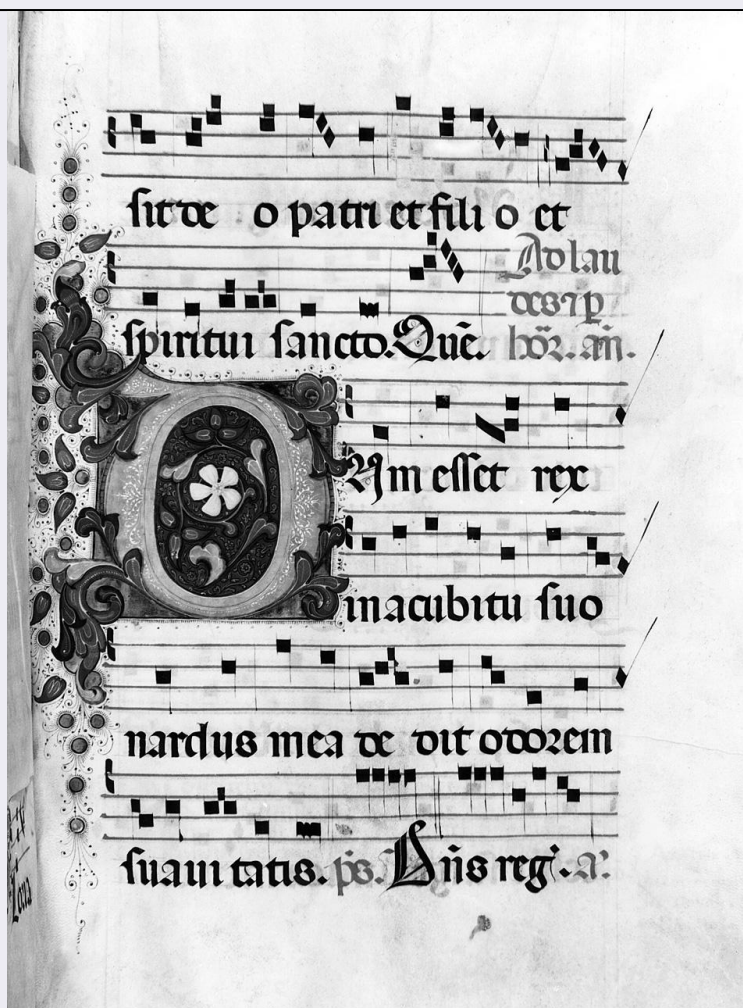 sit de o patri et fili o et
Ad lau
des ⁊ p̱
spiritui sancto. Que᷃. hōr. an̄.
Um esset rex
in acubitu suo
nardus mea de dit odorem
suaui tatis. p̄s. Dn̄s reg̛. a.